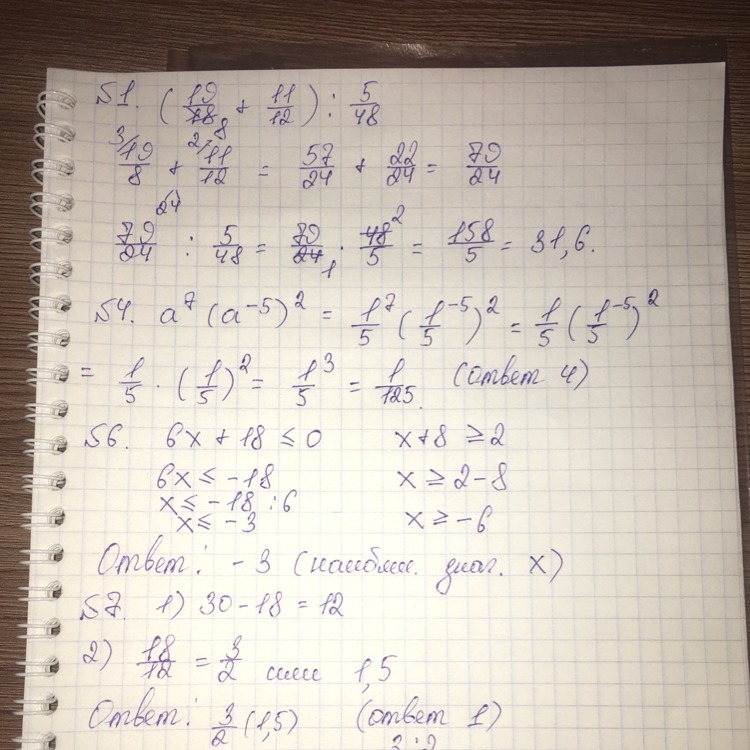 №1. (19/18 + 11/12) : 5/48
3/19/8 + 2/11/12 = 57/24 + 22/24 = 79/24
24
79/24 : 5/48 = 79/24 · 48/5 = 158/5 = 31,6.
№4. a⁷(a⁻⁵)² = 1/5⁷(1/5⁻⁵)² = 1/5(1/5⁻⁵)²
= 1/5 · (1/5)² = 1/5³ = 1/125. (ответ 4)
№6. 6x + 18 ≤ 0 x+8 ≥ 2
6x ≤ -18 x ≥ 2-8
x ≤ -18 : 6
x ≤ -3 x ≥ -6
Ответ: -3 (наибол. знач. x)
№7. 1) 30-18 = 12
2) 18/12 = 3/2 или 1,5
Ответ: 3/2 (1,5) (ответ 1)